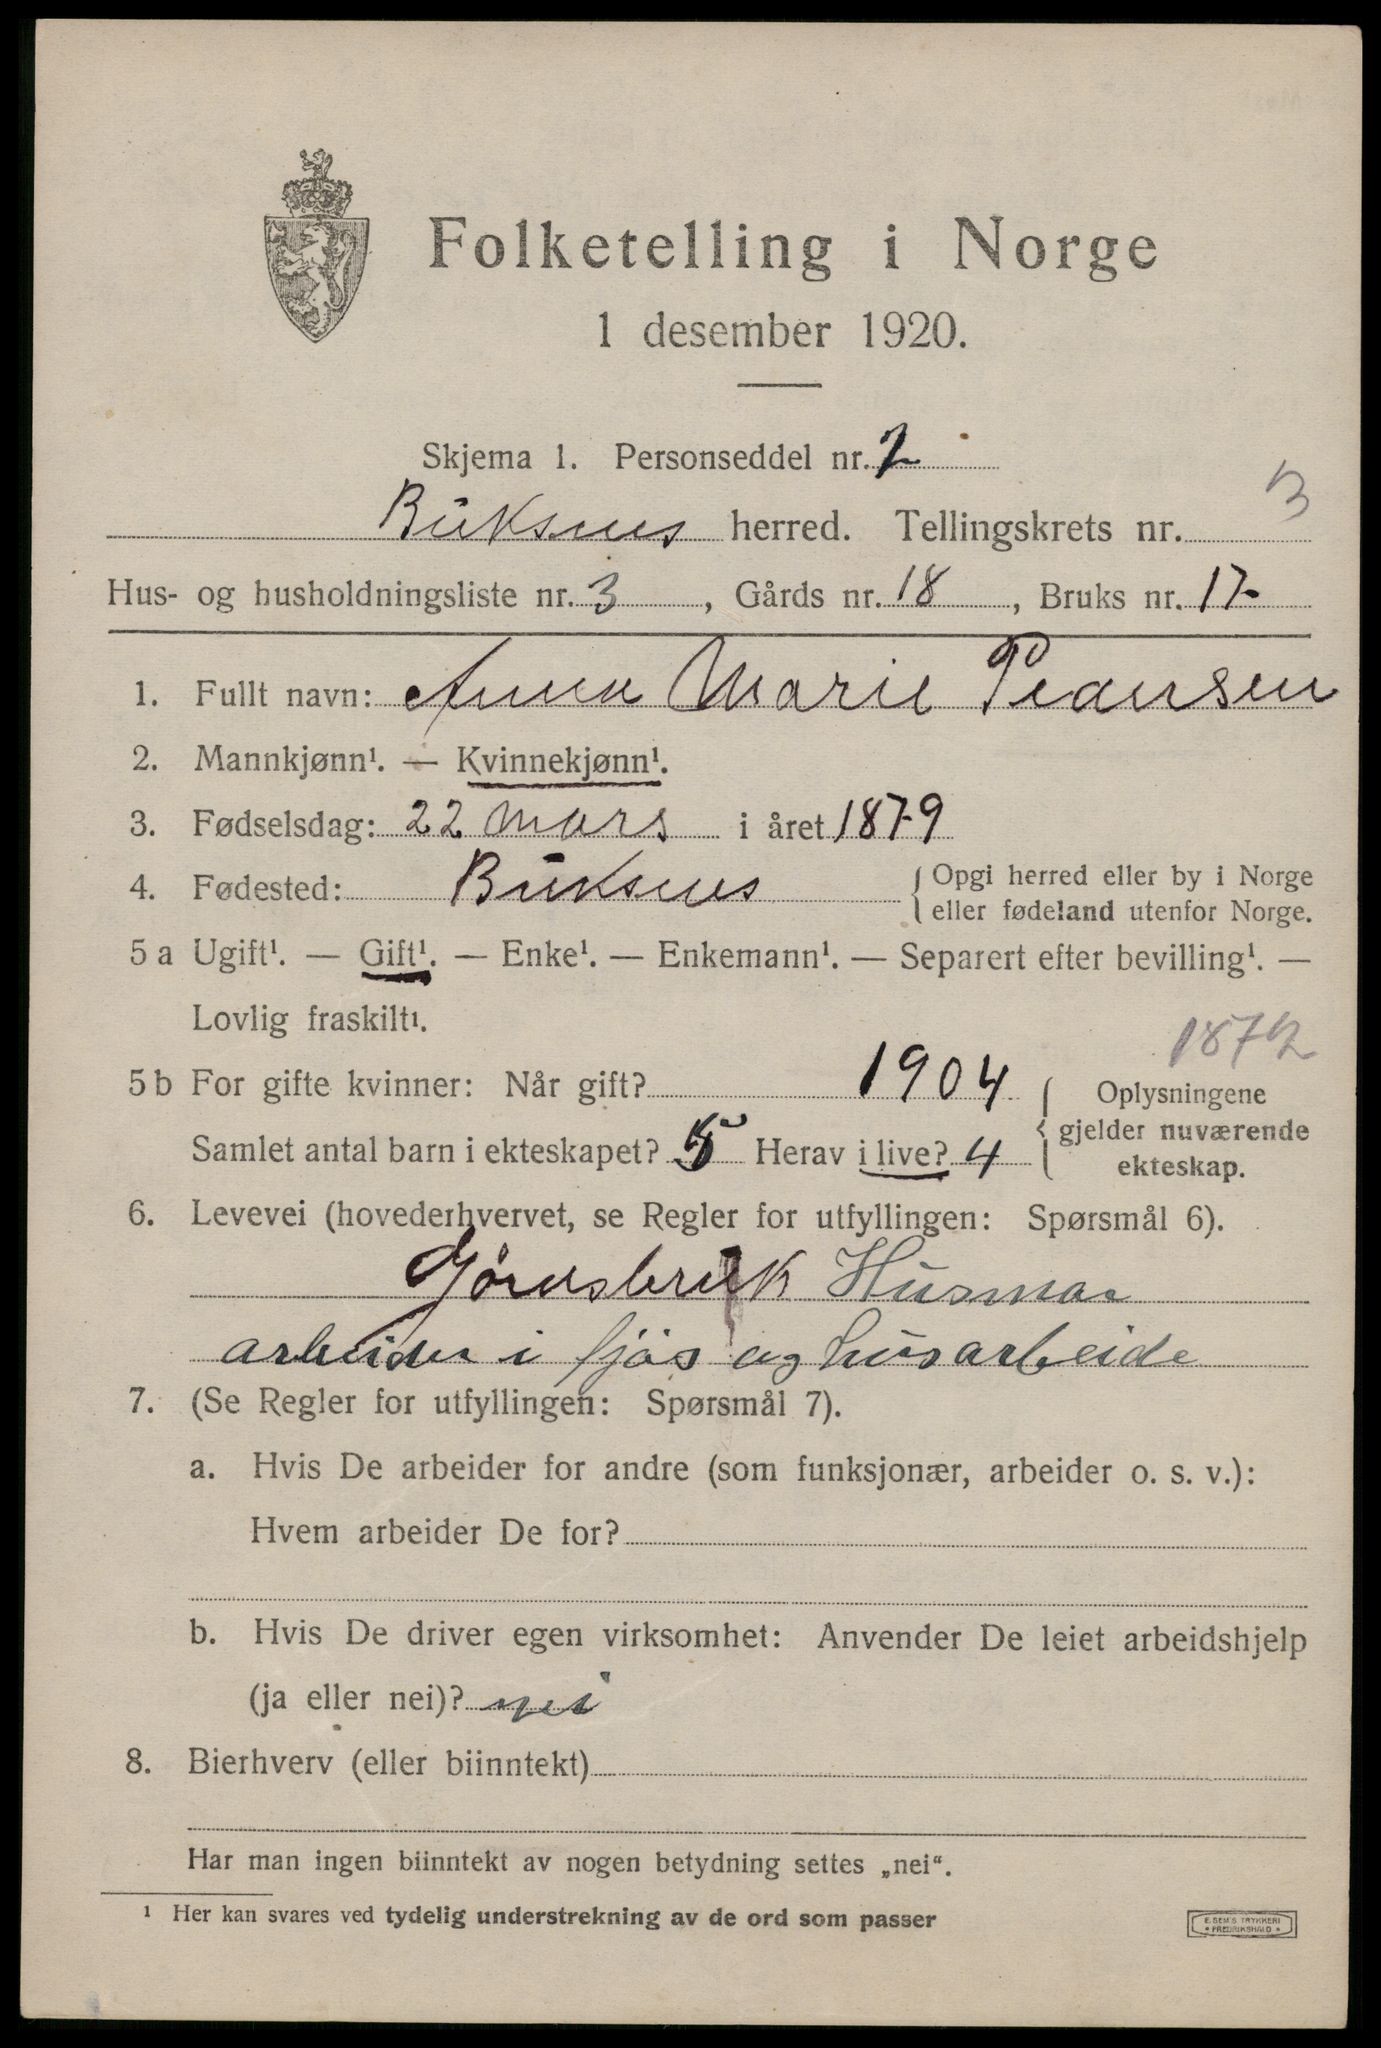 Folketelling i Norge
1 desember 1920.
Skjema 1. Personseddel nr. 2
Buksnes herred. Tellingskrets nr. 3
Hus- og husholdningsliste nr. 3, Gårds nr. 18, Bruks nr. 17
1. Fullt navn: Anna Marie Peansen
2. Mannkjønn¹. — Kvinnekjønn¹.
3. Fødselsdag: 22 mars i året 1879
4. Fødested: Buksnes { Opgi herred eller by i Norge
eller fødeland utenfor Norge.
5 a Ugift¹. — Gift¹. — Enke¹. — Enkemann¹. — Separert efter bevilling¹. —
Lovlig fraskilt¹.
1872
5 b For gifte kvinner: Når gift? 1904 { Oplysningene
gjelder nuværende
ekteskap.
Samlet antal barn i ekteskapet? 5 Herav i live? 4
6. Levevei (hovederhvervet, se Regler for utfyllingen: Spørsmål 6).
Gårdsbruk Husmor
arbeider i fjøs og husarbeide
7. (Se Regler for utfyllingen: Spørsmål 7).
a. Hvis De arbeider for andre (som funksjonær, arbeider o. s. v.):
Hvem arbeider De for?
b. Hvis De driver egen virksomhet: Anvender De leiet arbeidshjelp
(ja eller nei)? nei
8. Bierhverv (eller biinntekt)
Har man ingen biinntekt av nogen betydning settes „nei“.
¹ Her kan svares ved tydelig understrekning av de ord som passer
E. SEM'S TRYKKERI
FREDRIKSHALD